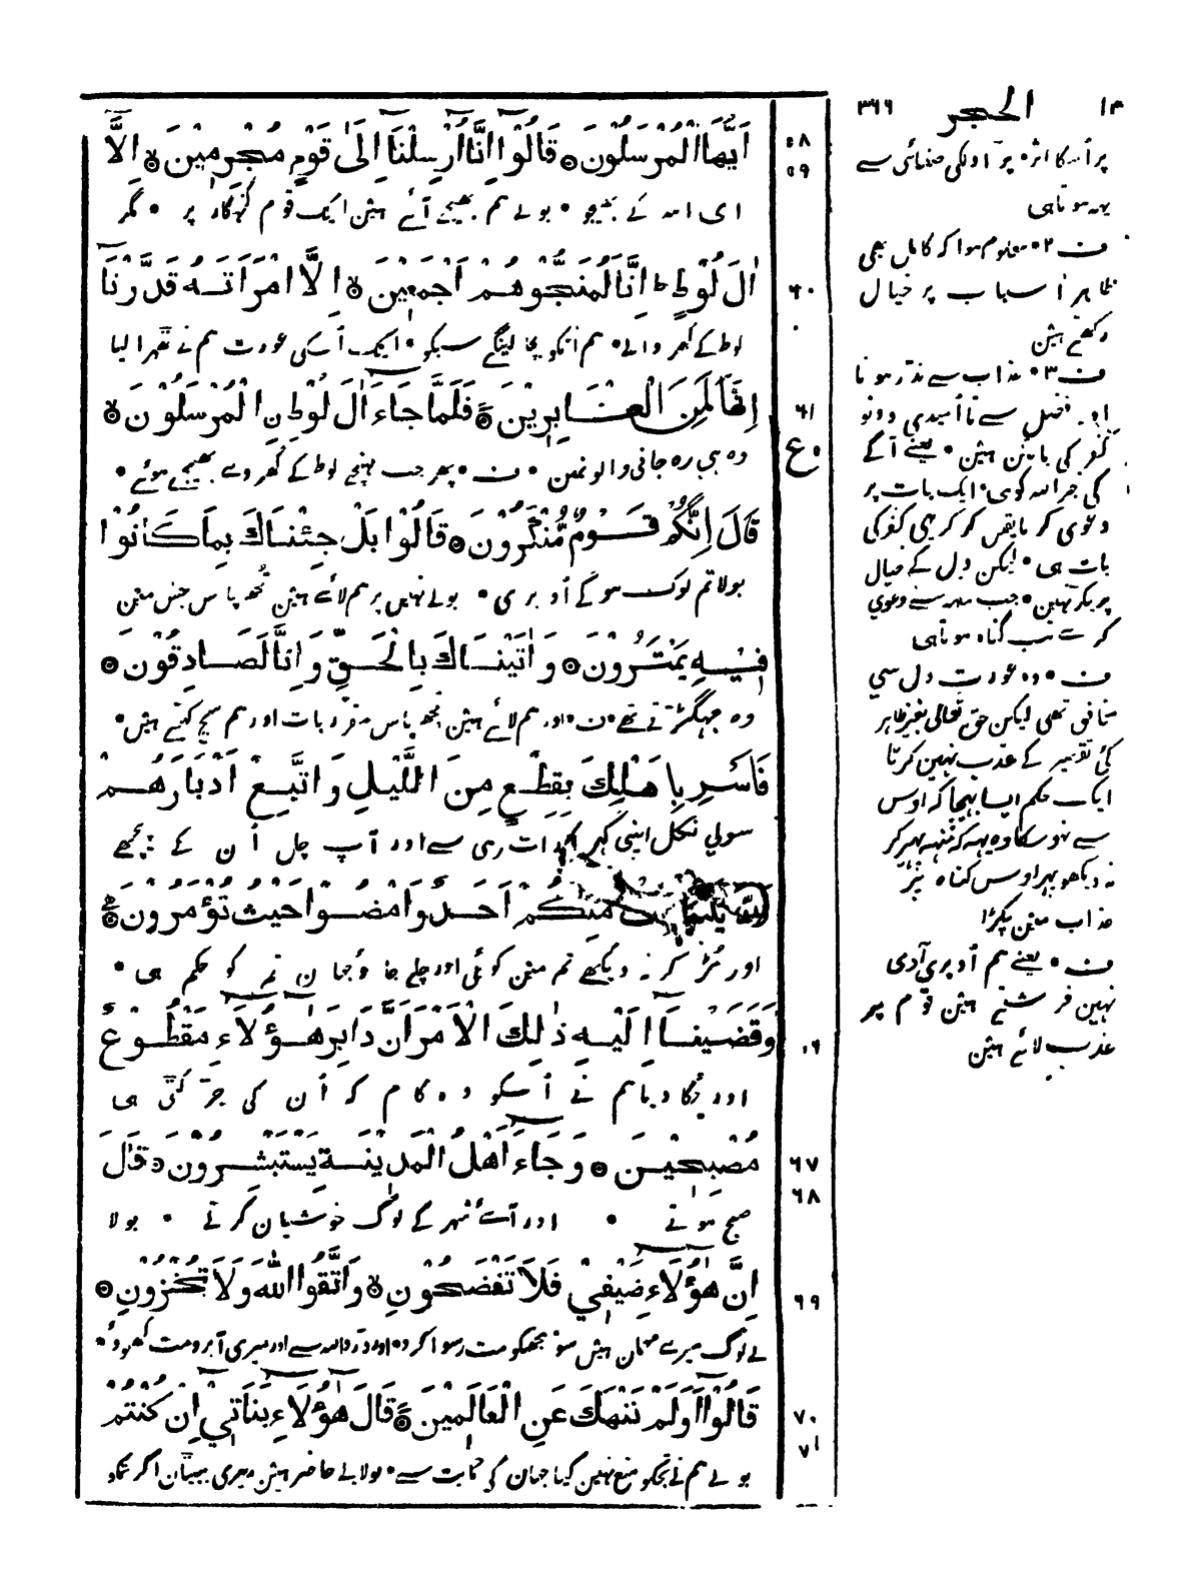 ١٣ الحجر ٣٦٦
اَيُّهَا الْمُرْسَلُوْنَ ۞ قَالُوْٓا اِنَّآ اُرْسِلْنَآ اِلٰى قَوْمٍ مُّجْرِمِيْنَ ۞ اِلَّآ
ای اللہ کے بھیجو • بولے ہم بھیجے آئے ہیں ایک قوم گنہگار پر • مگر
اٰلَ لُوْطٍ ط اِنَّا لَمُنَجُّوْهُمْ اَجْمَعِيْنَ ۞ اِلَّا امْرَاَتَهٗ قَدَّرْنَآ
لوط کے گھر والے • ہم انکو بچا لینگے سبکو • ایک اُسکی عورت ہم نے ٹھہرا لیا
اِنَّهَا لَمِنَ الْغٰبِرِيْنَ ۞ فَلَمَّا جَآءَ اٰلَ لُوْطِ نِ الْمُرْسَلُوْنَ ۞
وہ ہی رہ جانی والونمین • ف • پھر جب پہنچے لوط کے گھر وے بھیجے ہوئے •
قَالَ اِنَّكُمْ قَوْمٌ مُّنْكَرُوْنَ ۞ قَالُوْا بَلْ جِئْنَاكَ بِمَا كَانُوْا
بولا تم لوگ ہوگے اُوپری • بولے نہیں پر ہم لائے ہین تجھ پاس جس مین
فِيْهِ يَمْتَرُوْنَ ۞ وَاٰتَيْنَاكَ بِالْحَقِّ وَاِنَّا لَصَادِقُوْنَ ۞
وہ جہگڑتے تھے • ف • اور ہم لائے ہین تجھ پاس مقرر بات اور ہم سچ کہتے ہیں •
فَاَسْرِ بِاَهْلِكَ بِقِطْعٍ مِنَ اللَّيْلِ وَاتَّبِعْ اَدْبَارَهُمْ
سولی نکل اپنی گھر کو رات رہی سے اور آپ چل اُن کے پیچھے
وَلَا يَلْتَفِتْ مِنْكُمْ اَحَدٌ وَامْضُوْا حَيْثُ تُؤْمَرُوْنَ ۞
اور مُڑ کر نہ دیکھے تم مین کوئی اور چلے جاؤ جہان تم کو حکم ہی •
وَقَضَيْنَآ اِلَيْهِ ذٰلِكَ الْاَمْرَ اَنَّ دَابِرَ هٰٓؤُلَآءِ مَقْطُوْعٌ
اور چُکا دیا ہم نے اُسکو وہ کام کہ اُن کی جڑ کٹی ہی
مُصْبِحِيْنَ ۞ وَجَآءَ اَهْلُ الْمَدِيْنَةِ يَسْتَبْشِرُوْنَ ۞ قَالَ
صبح ہوتے • اور آئے شہر کے لوگ خوشیان کرتے • بولا
اِنَّ هٰٓؤُلَآءِ ضَيْفِيْ فَلَا تَفْضَحُوْنِ ۞ وَاتَّقُوا اللهَ وَلَا تُخْزُوْنِ ۞
لے لوگ میرے مہمان ہیں سو مجھکو مت رسوا کرو • اور ڈرو اللہ سے اور میری آبرو مت کھوؤ •
قَالُوْٓا اَوَلَمْ نَنْهَكَ عَنِ الْعَالَمِيْنَ ۞ قَالَ هٰٓؤُلَآءِ بَنَاتِيْٓ اِنْ كُنْتُمْ
بولے ہم نے تجکو منع نہین کیا جہان کی حمایت سے • بولا لے حاضر ہین میری بیٹیان اگر تمکو
٥٨
٥٩
٦٠
٦١
ع
٦
٦٧
٦٨
٦٩
٧٠
٧١
پر اُسکا اثر • پورا اونکی صفائی سے
یہہ ہوتا ہی
ف ٢ • معلوم ہوا کہ کامل بھی
ظاہر اسباب پر خیال
رکھتے ہین
ف ٣ • عذاب سے نڈر ہونا
اور فضل سے نا اُمیدی دونو
کفر کی باتین ہین • یعنے آگے
کی خبر اللہ کو ہی • ایک بات پر
دعوی کر یقین کر کر ہی کفر کی
بات ہی • لیکن دل کے خیال
پر پکڑ نہین • جب منہ سے دعوی
کرے تب گناہ ہوتا ہی
ف • وہ عورت دل سی
منافق تھی لیکن حق تعالی بغیر ظاہر
کی تقصیر کے عذاب نہین کرتا
ایک حکم ایسا بہیجا کہ اوس
سے نہو سکا وہ یہہ کہ منہہ پھیر کر
نہ دیکھو پھر اوس گناہ پر
عذاب مین پکڑا
ف • یعنے ہم اُوپری آدمی
نہین فرشتے ہین قوم پر
عذاب لائے ہین